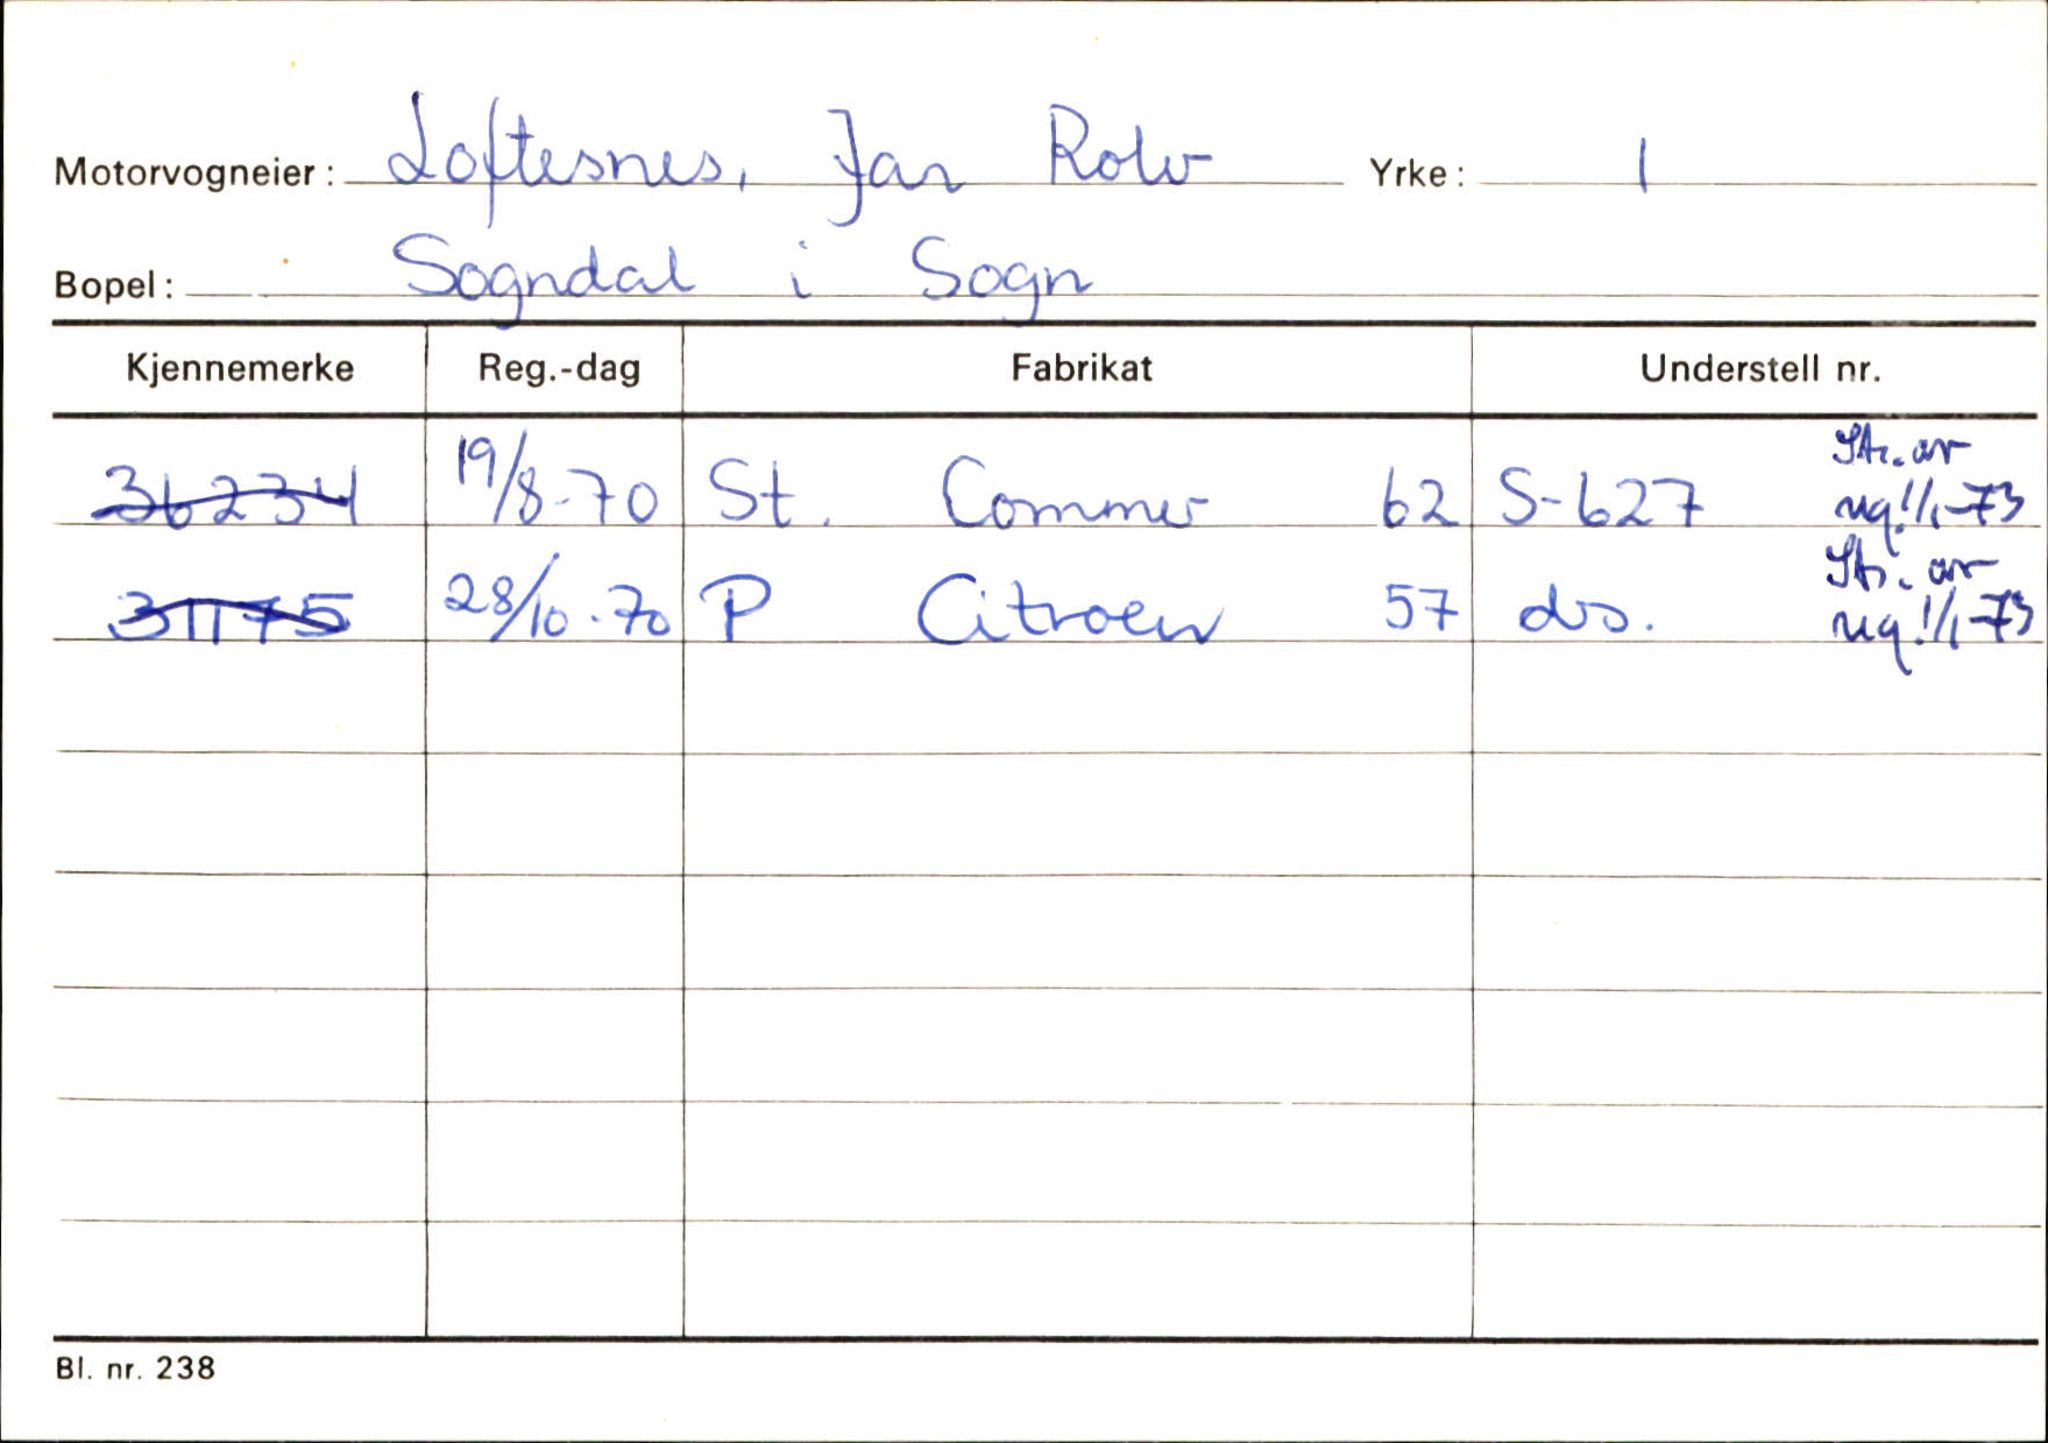 Motorvogneier: Loftesnes, Jan Rolv Yrke: 1
Bopel: Sogndal i Sogn
Kjennemerke Reg.-dag Fabrikat Understell nr.
36234 19/8-70 St. Commer 62 S-627 Str. av
reg. 1/1-73
31175 28/10-70 P Citroen 57 ds. Str. av
reg. 1/1-73
Bl. nr. 238